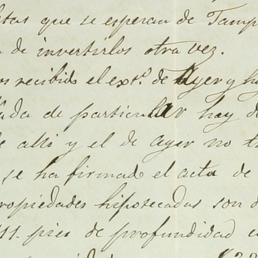 tas que se esperan de Tamp
de invertirlos otra vez.
recibido el ext.º de Ayer y h
da de particular hay d
de alli y el de ayer no t
se ha firmado el acta de
ropiedades hipotecadas son d
11 pies de profundidad e